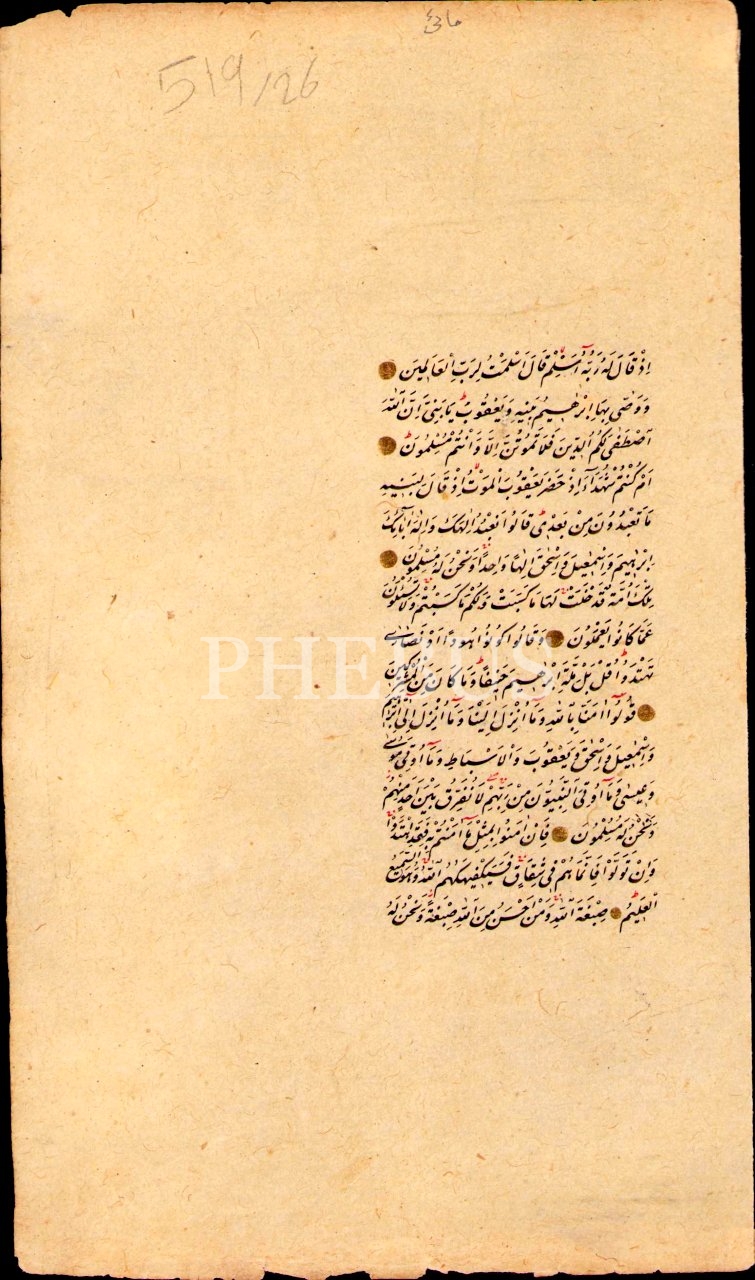 519/26
اِذْ قَالَ لَهُ رَبُّهُ اَسْلِمْ قَالَ اَسْلَمْتُ لِرَبِّ الْعَالَمِينَ
وَوَصّٰى بِهَا اِبْرٰهِيمُ بَنِيهِ وَيَعْقُوبُ يَا بَنِيَّ اِنَّ اللّٰهَ
اصْطَفٰى لَكُمُ الدِّينَ فَلَا تَمُوتُنَّ اِلَّا وَاَنْتُمْ مُسْلِمُونَ
اَمْ كُنْتُمْ شُهَدَآءَ اِذْ حَضَرَ يَعْقُوبَ الْمَوْتُ اِذْ قَالَ لِبَنِيهِ
مَا تَعْبُدُونَ مِنْ بَعْدِى قَالُوا نَعْبُدُ اِلٰهَكَ وَاِلٰهَ اٰبَآئِكَ
اِبْرٰهِيمَ وَاِسْمٰعِيلَ وَاِسْحٰقَ اِلٰهًا وَاحِدًا وَنَحْنُ لَهُ مُسْلِمُونَ
تِلْكَ اُمَّةٌ قَدْ خَلَتْ لَهَا مَا كَسَبَتْ وَلَكُمْ مَا كَسَبْتُمْ وَلَا تُسْئَلُونَ
عَمَّا كَانُوا يَعْمَلُونَ وَقَالُوا كُونُوا هُودًا اَوْ نَصَارٰى
تَهْتَدُوا قُلْ بَلْ مِلَّةَ اِبْرٰهِيمَ حَنِيفًا وَمَا كَانَ مِنَ الْمُشْرِكِينَ
قُولُوٓا اٰمَنَّا بِاللّٰهِ وَمَآ اُنْزِلَ اِلَيْنَا وَمَآ اُنْزِلَ اِلٰٓى اِبْرٰهِيمَ
وَاِسْمٰعِيلَ وَاِسْحٰقَ وَيَعْقُوبَ وَالْاَسْبَاطِ وَمَآ اُوتِىَ مُوسٰى
وَعِيسٰى وَمَآ اُوتِىَ النَّبِيُّونَ مِنْ رَبِّهِمْ لَا نُفَرِّقُ بَيْنَ اَحَدٍ مِنْهُمْ
وَنَحْنُ لَهُ مُسْلِمُونَ فَاِنْ اٰمَنُوا بِمِثْلِ مَآ اٰمَنْتُمْ بِهِ فَقَدِ اهْتَدَوْا
وَاِنْ تَوَلَّوْا فَاِنَّمَا هُمْ فِى شِقَاقٍ فَسَيَكْفِيكَهُمُ اللّٰهُ وَهُوَ السَّمِيعُ
الْعَلِيمُ صِبْغَةَ اللّٰهِ وَمَنْ اَحْسَنُ مِنَ اللّٰهِ صِبْغَةً وَنَحْنُ لَهُ
PHEBUS